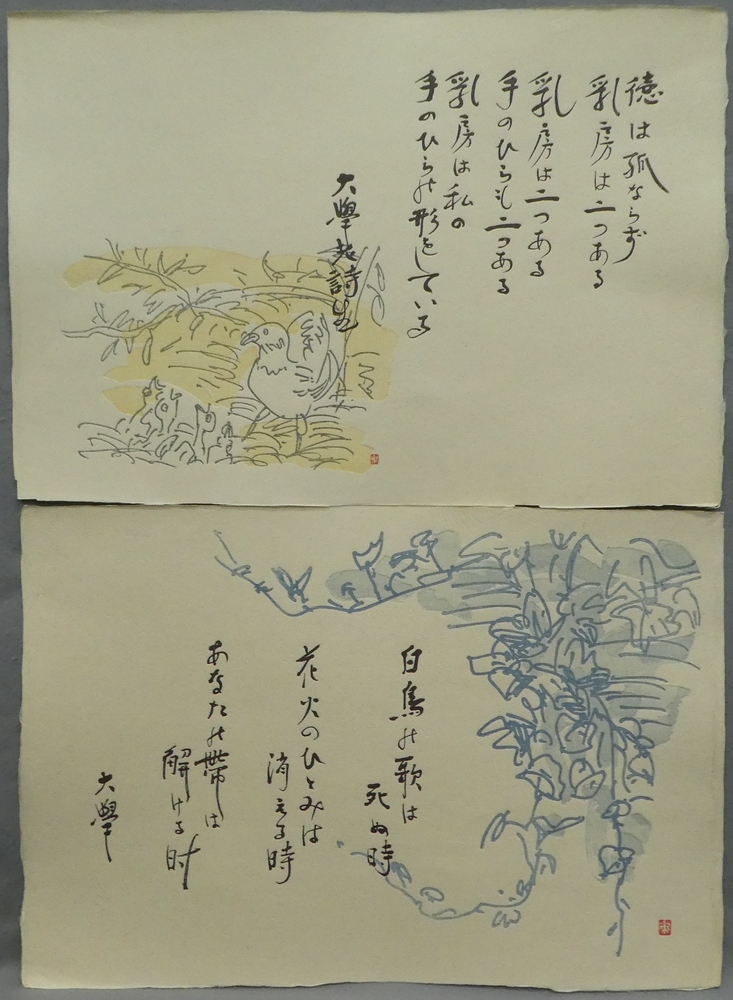 徳は孤ならず
乳房は二つある
乳房は二つある
手のひらも二つある
乳房は私の
手のひらの形をしている
大學老詩生
白鳥の歌は
死ぬ時
花火のひとみは
消える時
あなたの帯は
解ける時
大學